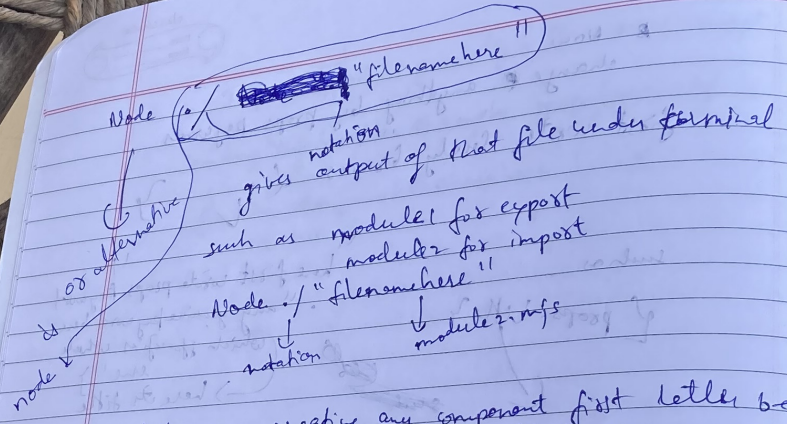 Node ./ "filenamehere"
notation
gives output of that file under terminal
or alternative
such as module1 for export
module2 for import
Node ./ "filenamehere"
is
notation
module2.mjs
node
any component first letter be